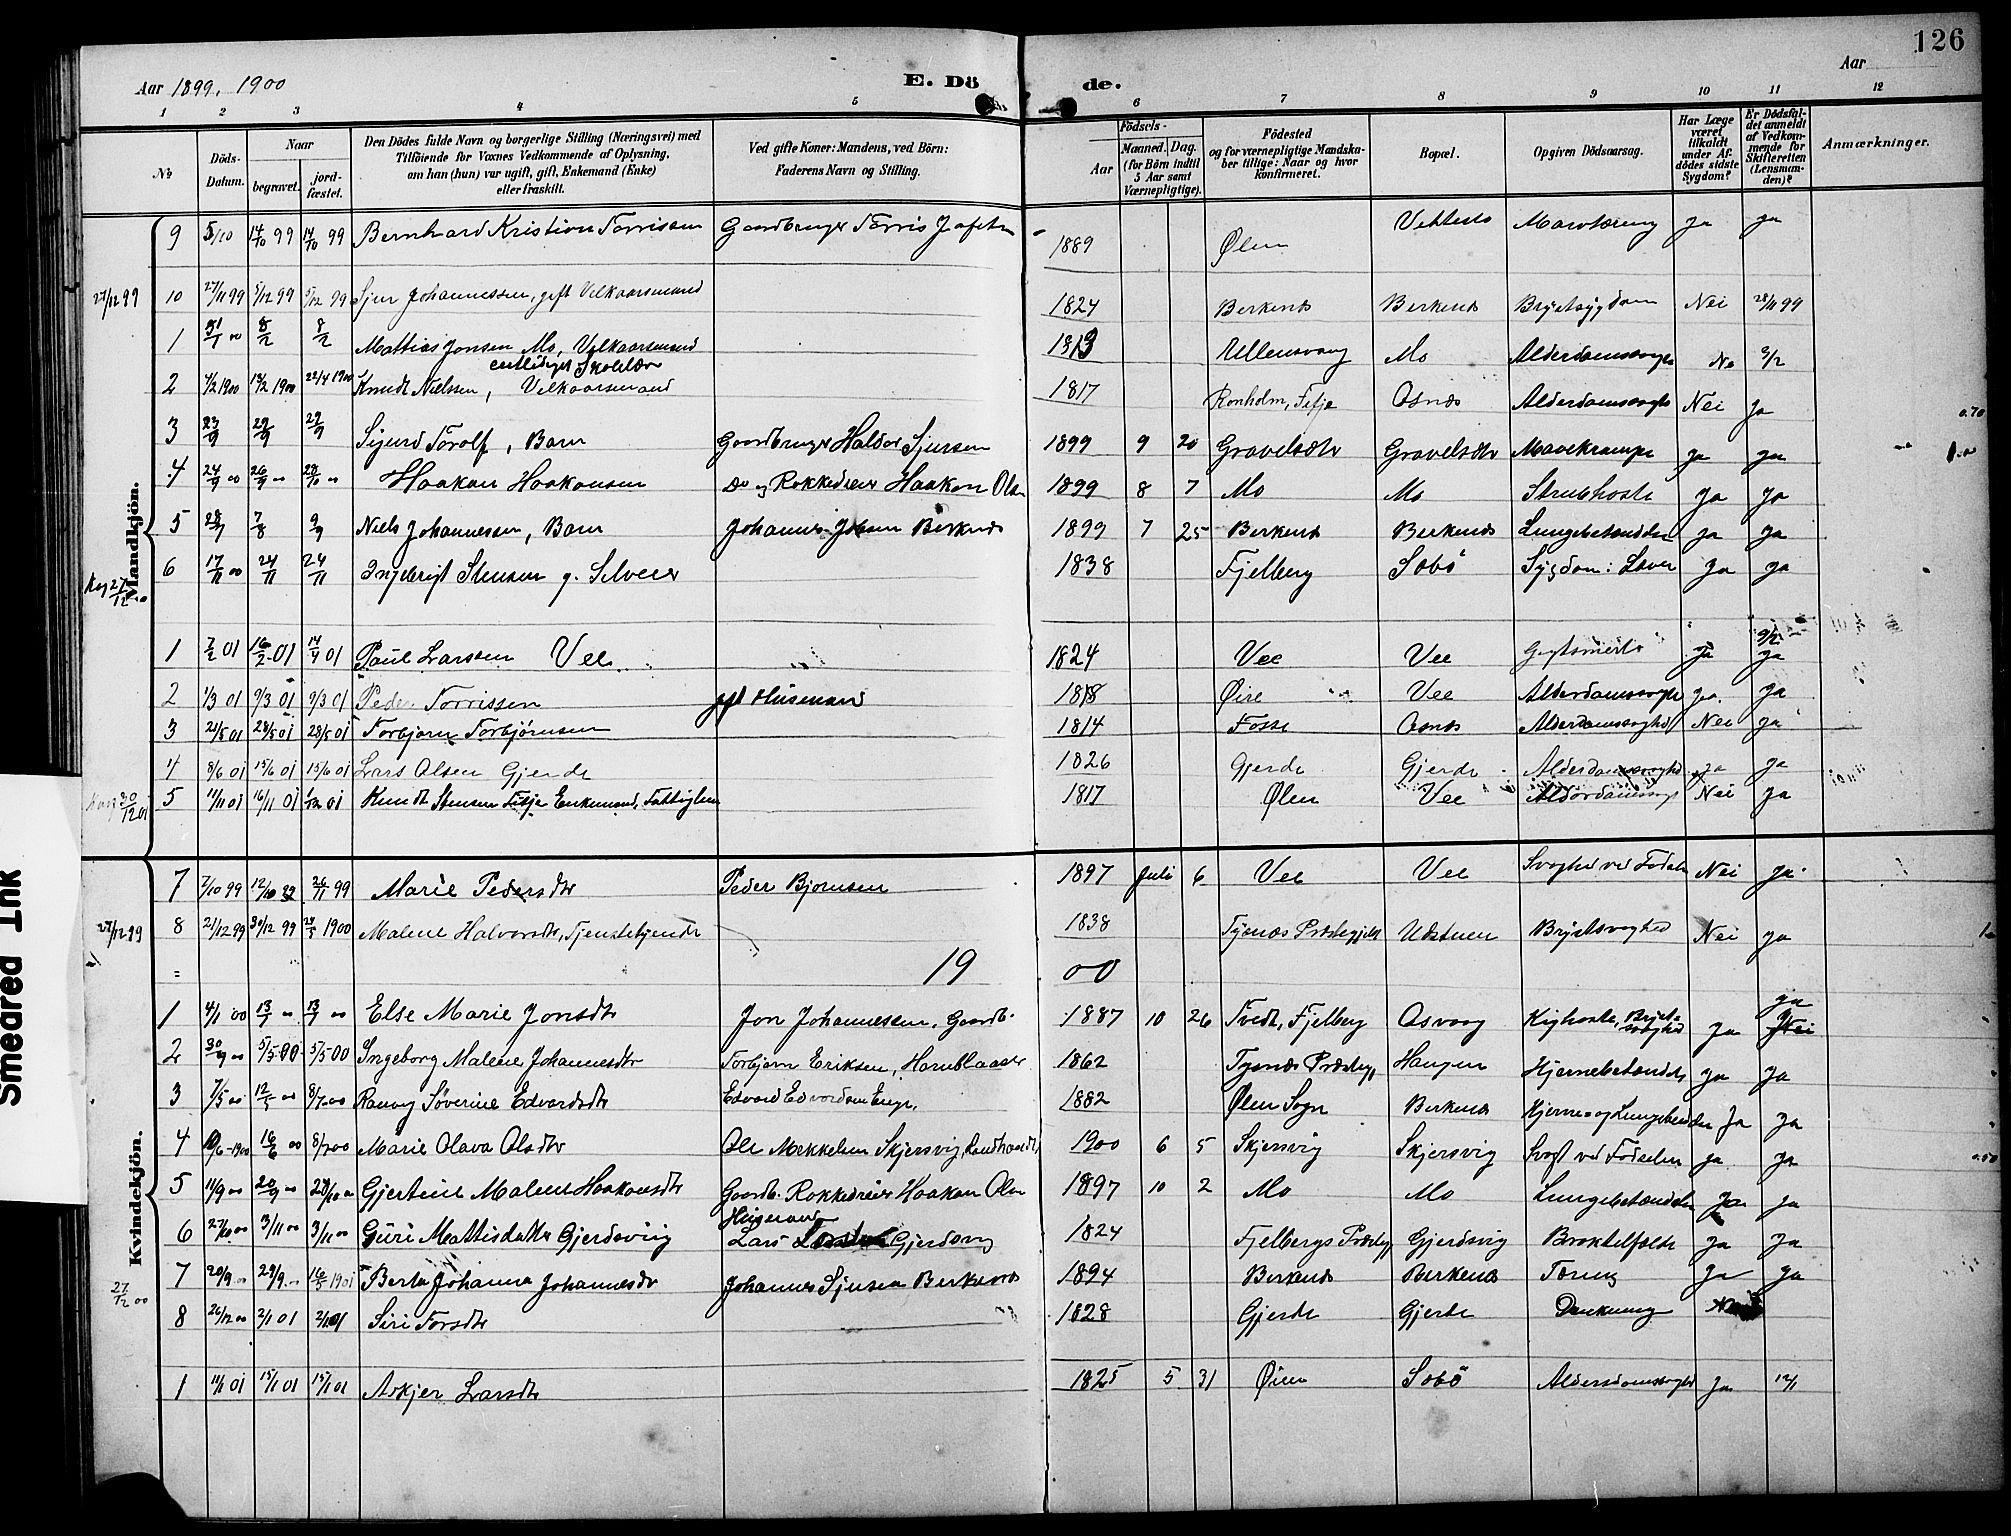 126
Aar 1899, 1900
E. Dö de.
Aar
1 2 3 4 5 6 7 8 9 10 11 12
No
Döds-Datum.
Naar
begravet.
jord-fæstet.
Den Dödes fulde Navn og borgerlige Stilling (Næringsvei) med
Tilföiende for Voxnes Vedkommende af Oplysning,
om han (hun) var ugift, gift, Enkemand (Enke)
eller fraskilt.
Ved gifte Koner: Mandens, ved Börn:
Faderens Navn og Stilling.
Födsels-
Aar
Maaned. Dag.
(for Börn indtil
5 Aar samt
Værnepligtige).
Födested
og for værnepligtige Mandska-
ber tillige: Naar og hvor
konfirmeret.
Bopæl.
Opgiven Dödsaarsag.
Har Læge
været
tilkaldt
under Af-
dödes sidste
Sygdom?
Er Dödsfal-
det anmeldt
af Vedkom-
mende for
Skifteretten
(Lensman-
den)?
Anmærkninger.
Mandkjön.
9 5/10 14/10 99 14/10 99 Bernhard Kristian Torrissen Gaardbruger Torris 1889 Ølen Ja Ja
27/12 99 10 27/11 99 5/12 99 5/12 99 Sjur Johannessen, gift Velkaarsmand 1824 Berkenes Berkenes Brystsygdom Nei 28/11 99
1 31/1 00 8/2 8/2 Mattias Jonsen Mo, Velkaarsmand 1813 Ullensvang Mo Alderdomssvaghed Ne 9/2
2 4/2 1900 1900 22/4 1900 Knudt Nielssen, Velkaarsmand 1817 Ronholm, Fitje Osnes Alderdomssvaghed Nei Ja
0.70
3 23/9 29/9 29/9 Sigurd Torolf, Barn Gaardbruger Haldor Sjursen 1899 9 20 Gravelsdtr Gravelsdtr Mavekrampe Ja Ja
4 24/9 00 26/9 00 28/10 00 Haakon Haakonsen Do og Rokkedreier Haakon Olsen 1899 8 7 Mo Mo Strubhoste Ja Ja
5 28/7 7/8 9/9 Niels Johannessen, Barn Johannes Berkenes 1899 7 25 Berkenes Berkenes Lungebetændelse Ja Ja
27/12 00 6 17/11 00 24/11 24/11 Ingebrigt Stensen g. Selveier 1838 Fjelberg Søbö Sygdom i Lever Ja Ja
1 7/2 01 16/2 01 14/4 01 Paul Larssen Vee 1824 Vee Vee Ja 9/2 Ja
2 1/3 01 9/3 01 9/3 01 Peder Torrissen gift Husmand 1818 Øire Vee Alderdomssvaghed Ja Ja
3 21/5 01 28/5 01 28/5 01 Torbjørn Torbjørnsen 1814 Fosse Osnes Alderdomssvaghed Nei Ja
4 8/6 01 15/6 01 15/6 01 Lars Olsen Gjerde 1826 Gjerde Gjerde Alderdomssvaghed Ja Ja
20/12 01 5 11/11 01 16/11 01 1/12 01 Knudt Stensen Fitje Enkemand, Fattiglem 1817 Ølen Vee Alderdomssvaghed Nei Ja
Kvindekjön.
7 7/10 99 12/10 99 26/11 99 Marie Pedersdtr Peder Bjornsen 1897 Juli 6 Vee Vee Svaghed ved Fødselen Nei Ja
27/12 99 8 21/12 99 30/12 99 1900 Malene Halvorsdtr, Tjenestepige 1838 Tysnæs Præstegjeld Udstuen Brystsvaghed Nei Ja
1900
1 4/1 00 13/7 00 13/7 00 Else Marie Jonsdtr Jon Johannessen, Gaardb. 1887 10 26 Tvedt, Fjelberg Osvaag Kighoste, Brystsvaghed Ja Ja
2 30/4 00 5/5 00 5/5 00 Ingeborg Malene Johannesdtr Torbjørn Eriksen, Hornblaaser 1862 Tysnæs Præstegj Haugen Hjernebetændelse Ja Ja
3 7/5 00 12/5 00 8/7 00 Ranvy Søverine Edvardsdtr Edvard Edvardsen 1882 Ølen Sogn Berkenes Hjerne- og Lungebetændelse Ja Ja
4 10/6 1900 16/6 00 8/7 00 Marie Olava Olsdtr Ole Mekkelsen Skjersvig, Landhandler 1900 6 5 Skjersvig Skjersvig Svagt ved Fødselen Ja Ja 0.50
5 11/9 00 20/9 00 28/10 00 Gjertine Malene Haakonsdtr Gaardb. Rokkedreier Haakon Olsen 1897 10 2 Mo Mo Lungebetændelse Ja Ja
6 27/10 00 3/11 00 3/11 00 Guri Mattisdatter Gjerdsvig Husmand Lars Gjerdsvig 1824 Fjelbergs Præstegj Gjerdsvig Ja Ja
27/12 00 7 20/9 00 29/9 00 16/5 1901 Berta Johanna Johannesdtr Johannes Sjursen Berkenes 1894 Berkenes Berkenes Tæring Ja Ja
8 26/12 00 2/1 01 2/1 01 Siri Torsdtr 1828 Gjerde Gjerde
1 11/1 01 15/1 01 15/1 01 Askjer Larsdtr 1825 5 31 Ølen Søbö Alderdomssvaghed Ja 12/1
Smeared Ink